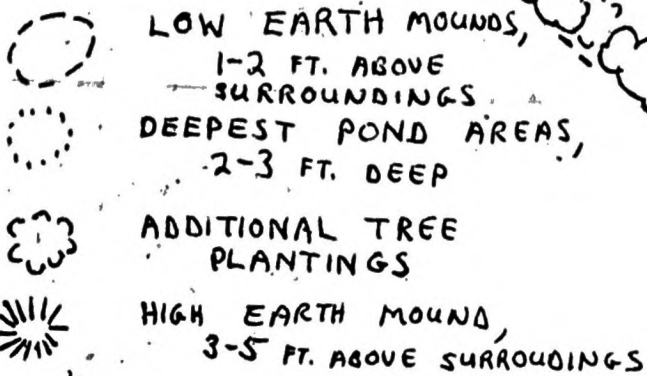 LOW EARTH MOUNDS,
1-2 FT. ABOVE
SURROUNDINGS.
DEEPEST POND AREAS,
2-3 FT. DEEP
ADDITIONAL TREE
PLANTINGS
HIGH EARTH MOUND,
3-5 FT. ABOVE SURROUDINGS